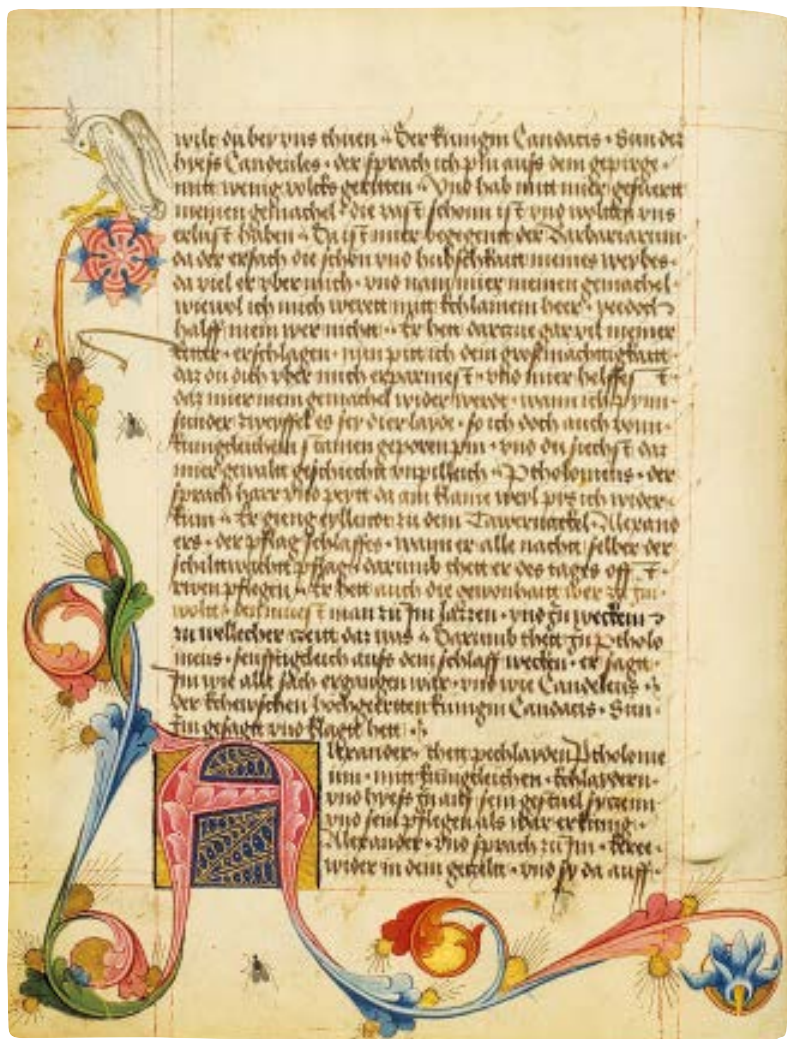 wilt du bey vns thuen · Der kunigin Candacis · Sun der
hyess Candeules · der sprach ich pin auss dem gepirge ·
mitt wenig volcks geritten · Vnd hab mitt mier gefuertt
meinen gemachel · die vast schonn ist vnd wollten vns
erlust haben · Da ist mier begegent der Barbariarum ·
da der ersach die schon vnd hubschkaitt meines weybes ·
da viel er vber mich · vnd nam mier meinen gemachel ·
wiewol ich mich werett mitt klainem heer · yedoch
halff mein wer nicht · Er hett dartzue gar vil meiner
erschlagen · nun pitt ich dein grossmachtigkaitt
daz du dich vber mich erparmest · vnd mier helffest ·
daz mier mein gemachel wider werde · wann ich pynn
sunder zweyffel es sey dier layd · so ich doch auch vonn
kungleichem stamen geporen pin · vnd du siechst daz
mier gewaltt geschiecht vnpilleich · Ptholomeus · der
sprach harr vnd peytt da ain klaine weyl piss ich wider
kum · Er gieng eyllendt zu dem Tavernackel Alexand
ers · der pflag schlaffes · wann er alle nacht selber der
schiltwacht pflag · darumb thett er des tages offt ·
rwen pflegen · Er hett auch die gewonhaitt wer zu jm
wollt · den muest man zu Jm lazzen · vnd jn wecken
zu wellicher zeitt daz was · Darumb thett jn Ptholo
meus · senfftigleich auss dem schlaff wecken · er sagtt
Jm wie alle sach ergangen war · vnd wie Candeleus ·
der hochgeritten kunigin Candacis · Sun ·
Jm gesagtt vnd klagtt hett ·
Alexander · thett pechlayden Ptholome
um · mitt kungleichen · klaydern ·
vnd hyess jn auff sein gestuel syczenn
vnd sein pflegen als war er kunig ·
Alexander · vnd sprach zu Jm · kere ·
wider in dem getzeltt · vnd sy da auff ·